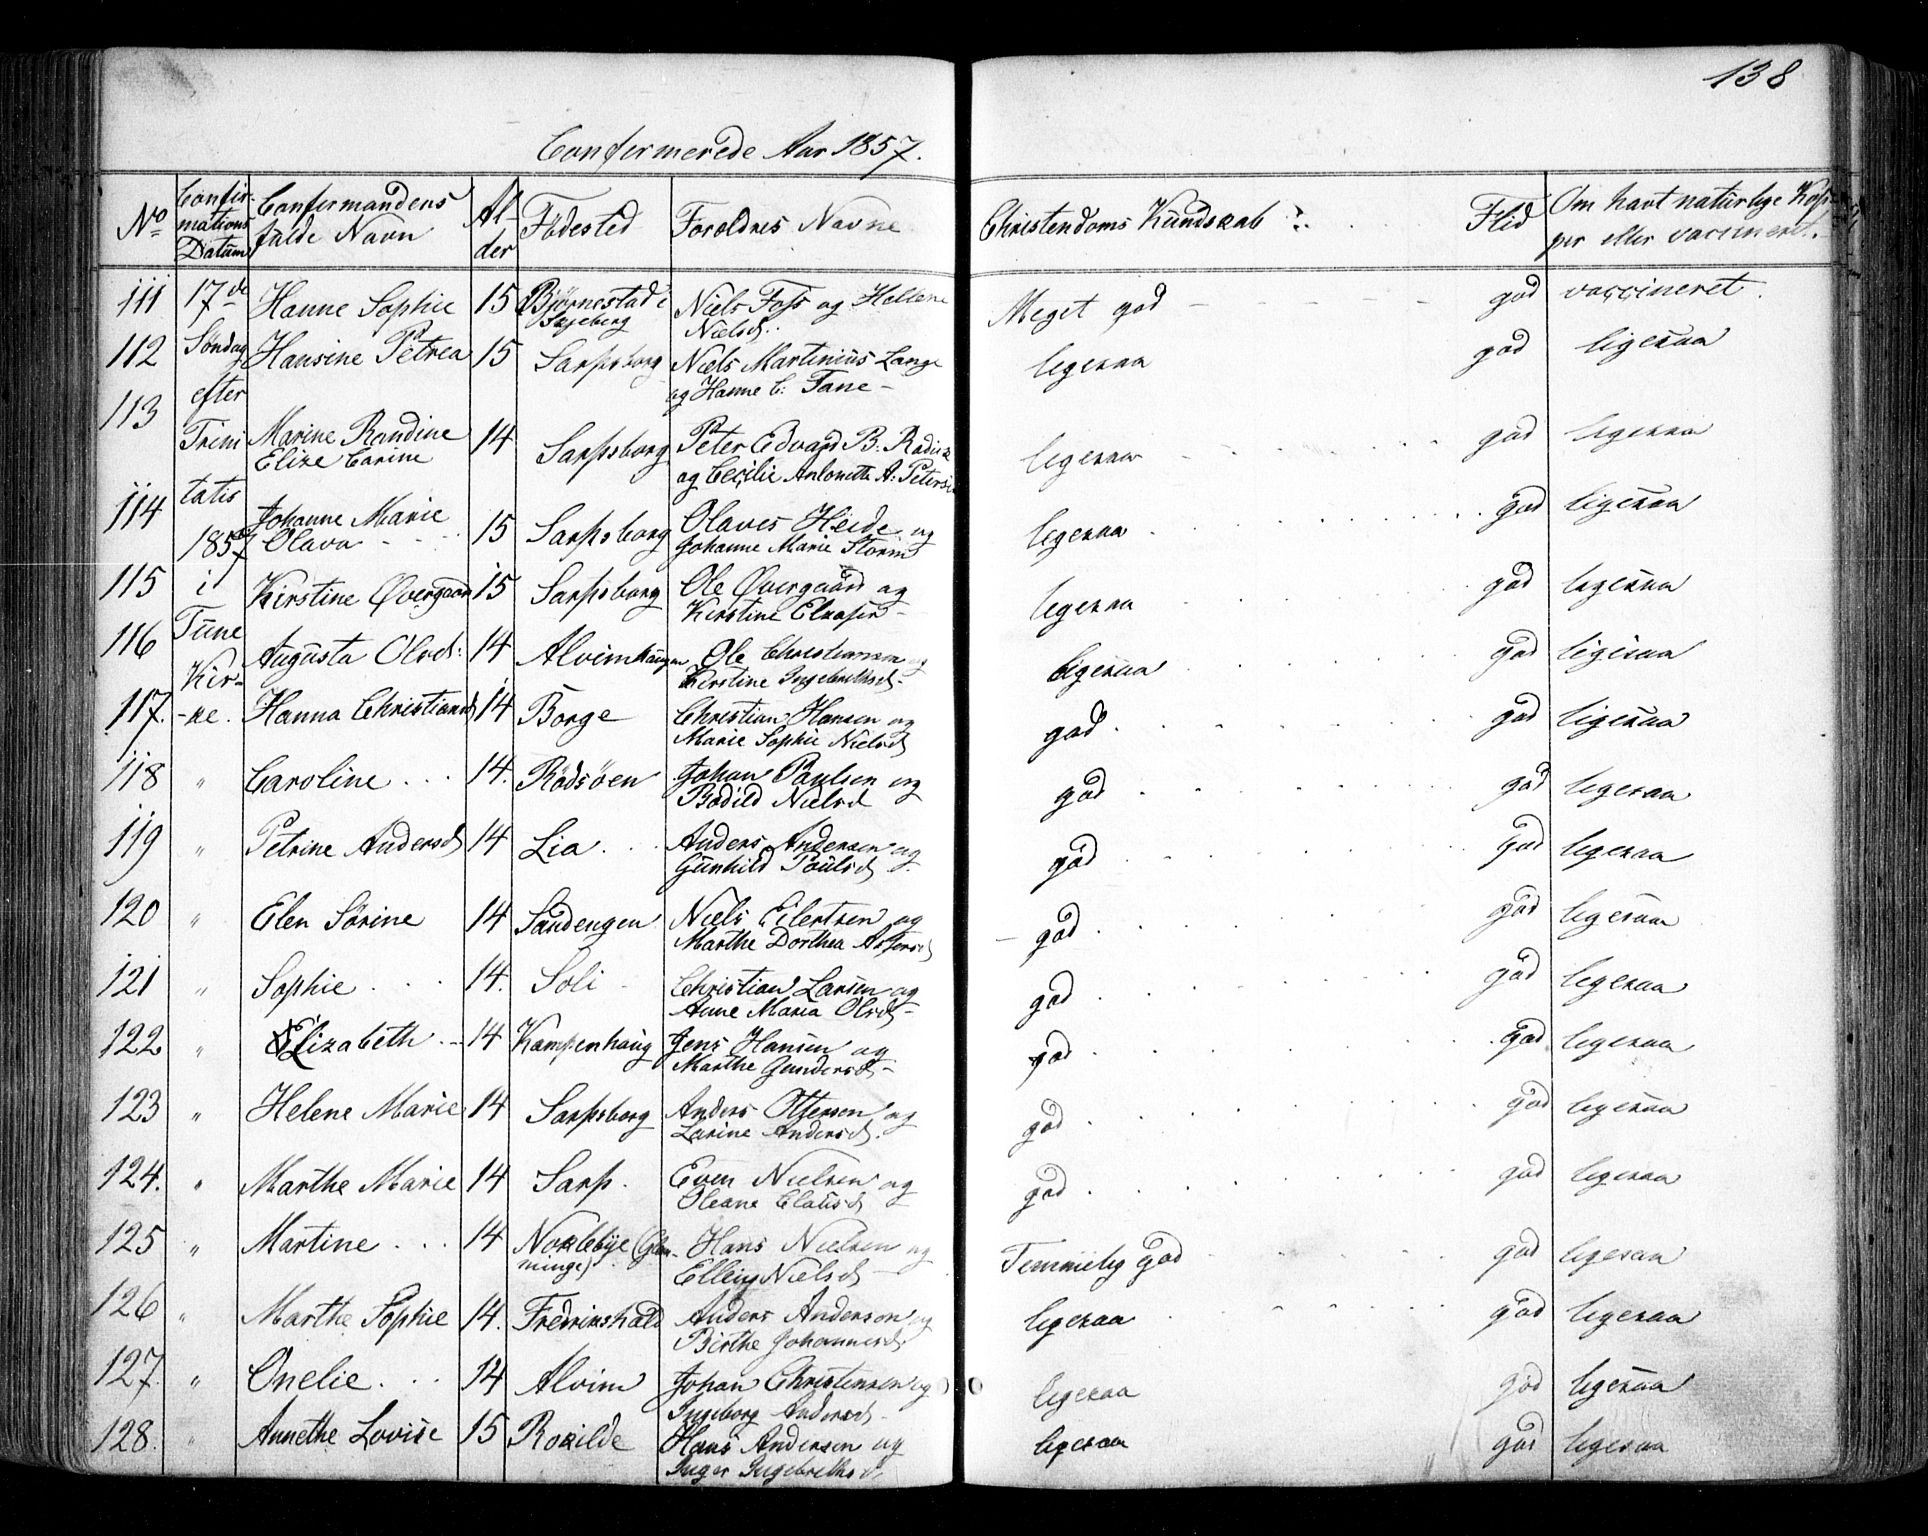 138
Confermerede Aar 1857.
No
Confir-
mations
Datum
Confermandens
fulde Navn
Al-
der
Födested
Foroldres Navne
Christendoms Kundskab
Flid
Om havt naturlige Kop-
per eller vaccineret.
111 17de Hanne Sophie 15 Bjørnestad i Niels Foss og Hellene Meget god god vaccineret.
Skjeberg Nielsd.
112 Søndag Hansine Petrea 15 Sarpsborg Niels Martinius Lange ligesaa god ligesaa
efter og Hanne C: Fane
113 Trini Marine Randine 14 Sarpsborg Peter Edvard B. ligesaa god ligesaa
Elize Carine og Cecilie Antonette A:
114 tatis Johanne Marie 15 Sarpsborg Olaves Heide og ligesaa god ligesaa
1857 Olava Johanne Marie Storm
115 i Kirstine Øvergaard 15 Sarpsborg Ole Øvergaard og ligesaa god ligesaa
Tune Kirstine
116 Augusta Olsd: 14 Alvimhaugen Ole Christiansen og ligesaa god ligesaa
Kir- Kirstine Ingebrethsd-
117. -ke. Hanna Christiansd 14 Borge Christian Hansen og god god ligesaa
Marie Sophie Nielsd
118 " Caroline 14. Rödsöen Johan Paulsen og god god ligesaa
Bodild Nielsd
119 " Petrine Andersd 14 Lia Anders Andersen og god god ligesaa
Gunhild Poulsd
120 " Elen Sörine 14 Sandengen Niels Eilertsen og god god ligesaa
Marthe Dorthea
121 " Sophie 14. Soli Christian Larsen og god god ligesaa
Anne Maria Olsd-
122 " Elizabeth 14 Kampenhaug Jens Hansen og god god ligesaa
Marthe Gundersd-
123 " Helene Marie 14 Sarpsborg Anders Ottersen og god god ligesaa
Larine Andersd.
124. " Marthe Marie 14 Sarp. Even Nielsen og god god ligesaa
Oleane Clausd
125 " Martine 14 Noklebye (Glem- Hans Nielsen og Temmelig god god ligesaa
minge) Elling Nielsd
126 " Marthe Sophie 14. Fredrikshald Anders Anderson og ligesaa god ligesaa
Birthe Johannesd.
127. " Onelie 14 Alvim Johan Christensen og ligesaa god ligesaa
Ingeborg Andersd-
128. " Annethe Lovise 15 Rokilde Hans Andersen og ligesaa god ligesaa
Inger Ingebrethsd